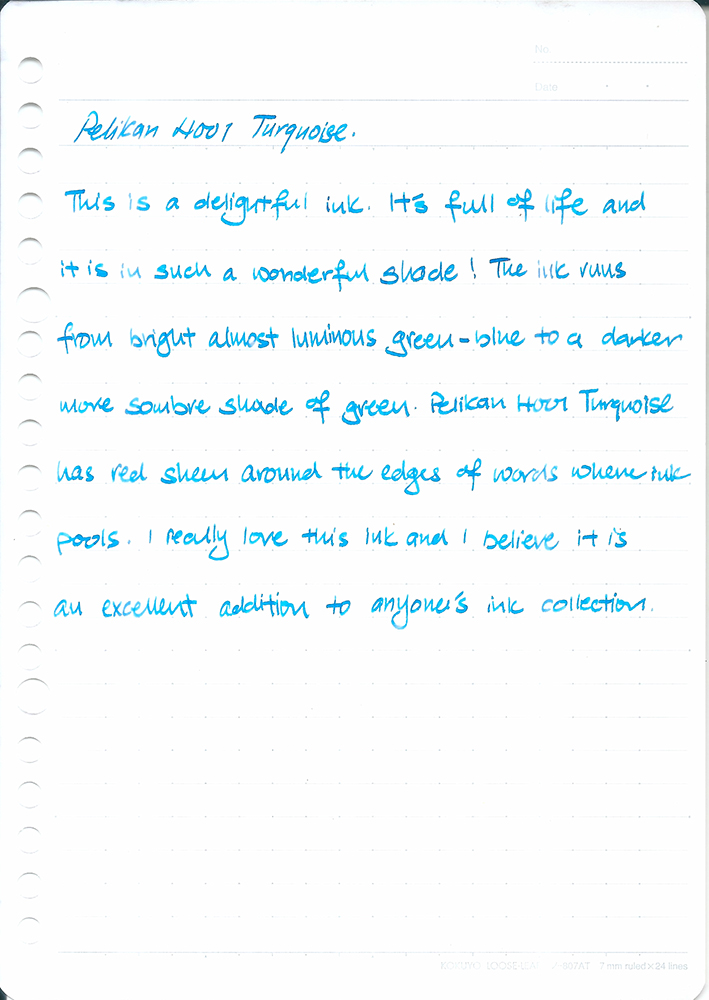 No
Date
Pelikan 4001 Turquoise.
This is a delightful ink. It's full of life and
it is in such a wonderful shade! The ink runs
from bright almost luminous green-blue to a darker
more sombre shade of green. Pelikan 4001 Turquoise
has red sheen around the edges of words where ink
pools. I really love this ink and I believe it is
an excellent addition to anyone's ink collection.
KOKUYO LOOSE-LEAF 7 mm ruled×24 lines